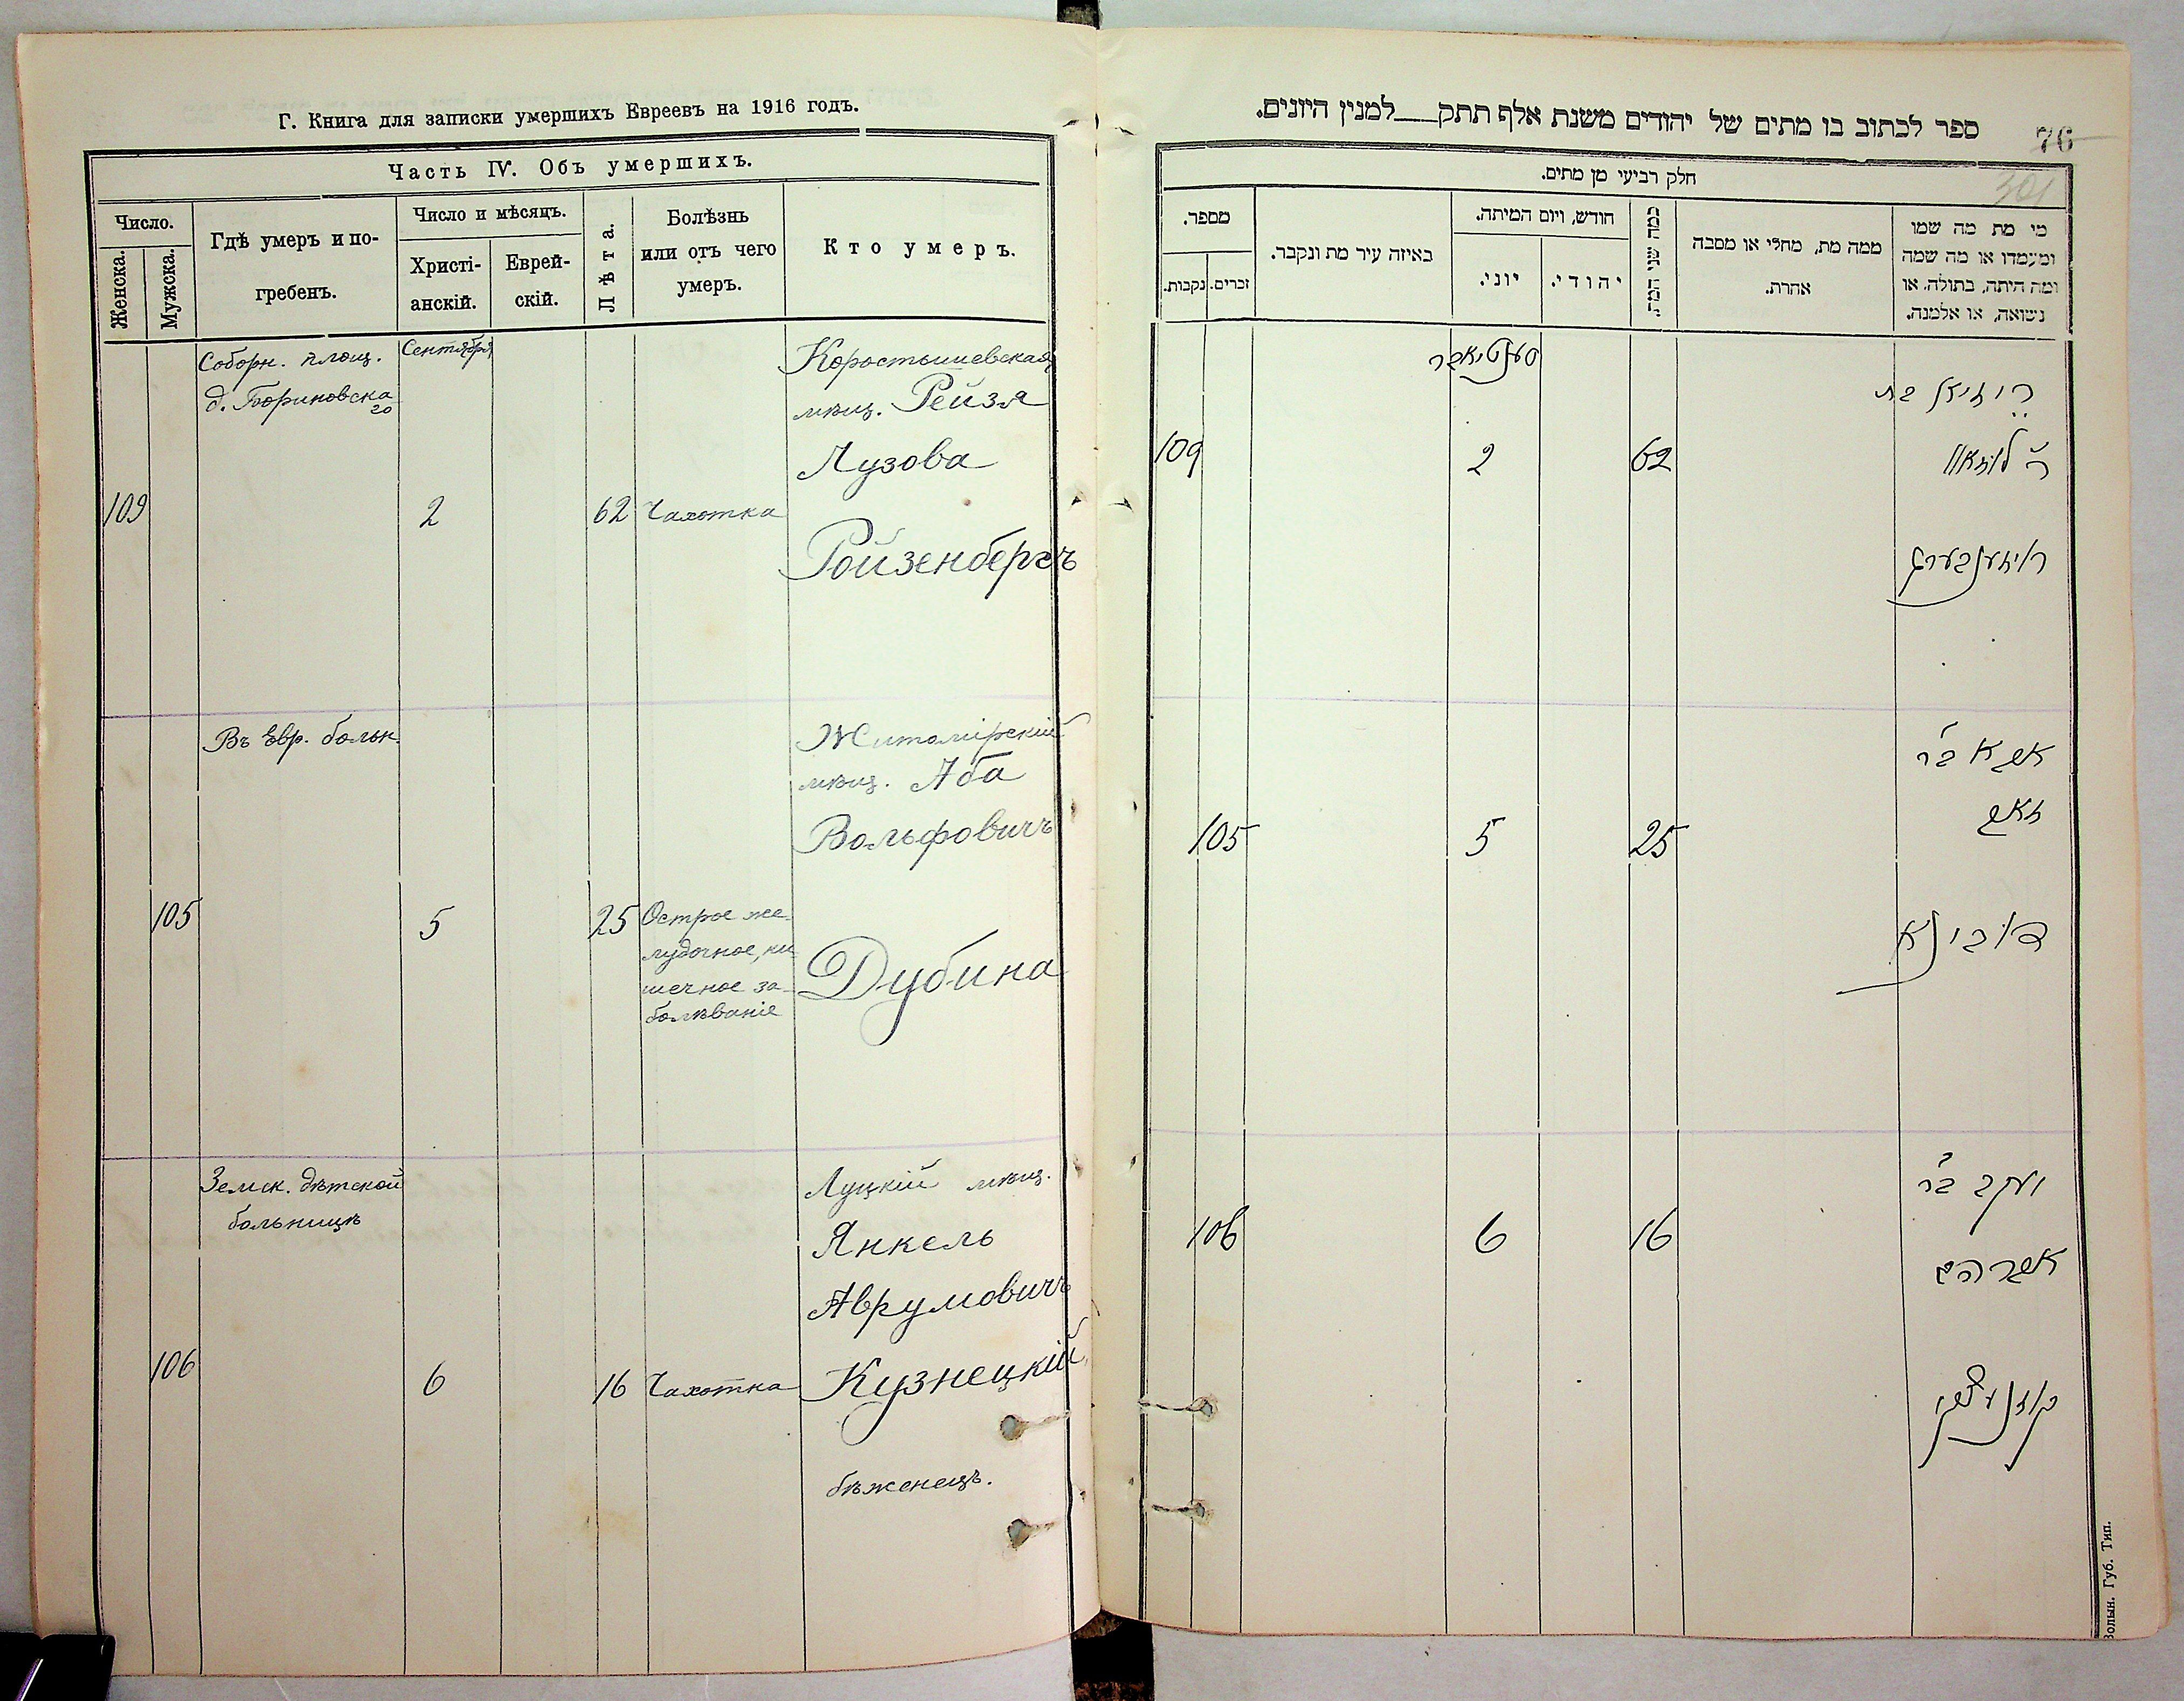 Г. Книга для записки умершихъ Евреевъ на 1916 годъ.
Часть IV. Объ умершихъ.
Число.
Женска.
Мужска.
Гдѣ умеръ и по-
гребенъ.
Число и мѣсяцъ.
Христі-
анскій.
Еврей-
скій.
Лѣта.
Болѣзнь
или отъ чего
умеръ.
Кто умеръ.
Соборн. площ.
д. Бориновска
го
Сентября
Коростышевская
мѣщ. Рейзя
Лузова
109
2
62
Чахотка
Ройзенбергъ
Въ Евр. больн.
Житомірскій
мѣщ. Аба
Вольфовичъ
105
5
25
Острое же-
лудочное, ки
шечное за-
болѣваніе
Дубина
Земск. дѣтской
больницѣ
Луцкій мѣщ.
Янкель
Аврумовичъ
106
6
16
Чахотка
Кузнецкій,
бѣженецъ.
ספר לכתוב בו מתים של יהודים משנת אלף תתק___למנין היונים.
76
301
חלק רביעי מן מתים.
מי מת מה שמו
ומעמדו או מה שמה
ומה היתה, בתולה, או
נשואה, או אלמנה.
ממה מת, מחלי או מסבה
אחרת.
כמה שני המת.
חודש, ויום המיתה.
יהודי.
יוני.
באיזה עיר מת ונקבר.
מספר.
זכרים.
נקבות.
סענטיאבר
רייזיל בת
ר' לוזאוו
109
2
62
רויזענבערג
אבא בר
זאב
105
5
25
דובינא
יעקב בר
אברהם
106
6
16
קוזנעצקי
Волын. Губ. Тип.